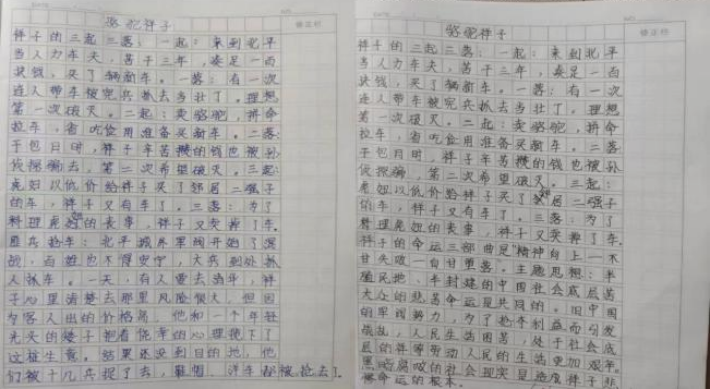 骆驼祥子
祥子的三起三落：一起：来到北平
当人力车夫，苦干三年，凑足一百
块钱，买了辆新车。一落：有一次
连人带车被宪兵抓去当壮丁。理想
第一次破灭。二起：卖骆驼，拼命
拉车，省吃俭用准备买新车。二落：
干包月时，祥子辛苦攒的钱也被孙
侦探骗去，第二次希望破灭。三起：
虎妞以低价给祥子买了邻居二强子
的车，祥子又有车了。三落：为了
料理虎妞的丧事，祥子又卖掉了车。
匪兵抢车：北平城
战，百姓也不得安宁，大兵到处抓
人抓车。一天，有人要去清华，祥
子心里清楚去那里风险很大，但因
为客人出的价格高，他和一个年轻
光头的矮子抱着侥幸的心理接下了
这桩生意。结果还没到目的地，他
们被十几兵捉了去，鞋帽、洋车都被抢去了。
骆驼祥子
祥子的三起三落：一起：来到北平
当人力车夫，苦干三年，凑足一百
块钱，买了辆新车。一落：有一次
连人带车被宪兵抓去当壮丁。理想
第一次破灭。二起：卖骆驼，拼命
拉车，省吃俭用准备买新车。二落
干包月时，祥子辛苦攒的钱也被孙
侦探骗，第二次希望破灭。三起：
虎妞以低价给祥子买了邻居二强子
的车，祥子又有车了。三落：为了
料理虎妞的丧事，祥子又卖掉了车。
祥子的命运三部曲是"精神向上—不
甘失败—自甘堕落。主题思想：半
殖民地、半封建的中国社会底层苦
大众的悲苦命运是共同的。旧中国
的军阀势力，为了抢夺利益而引发
战乱，人民生活困苦，处于社会底
层的祥等劳动人民的生活更加艰辛。
黑暗腐败的社会现实是造成祥子悲
惨命运的根本。